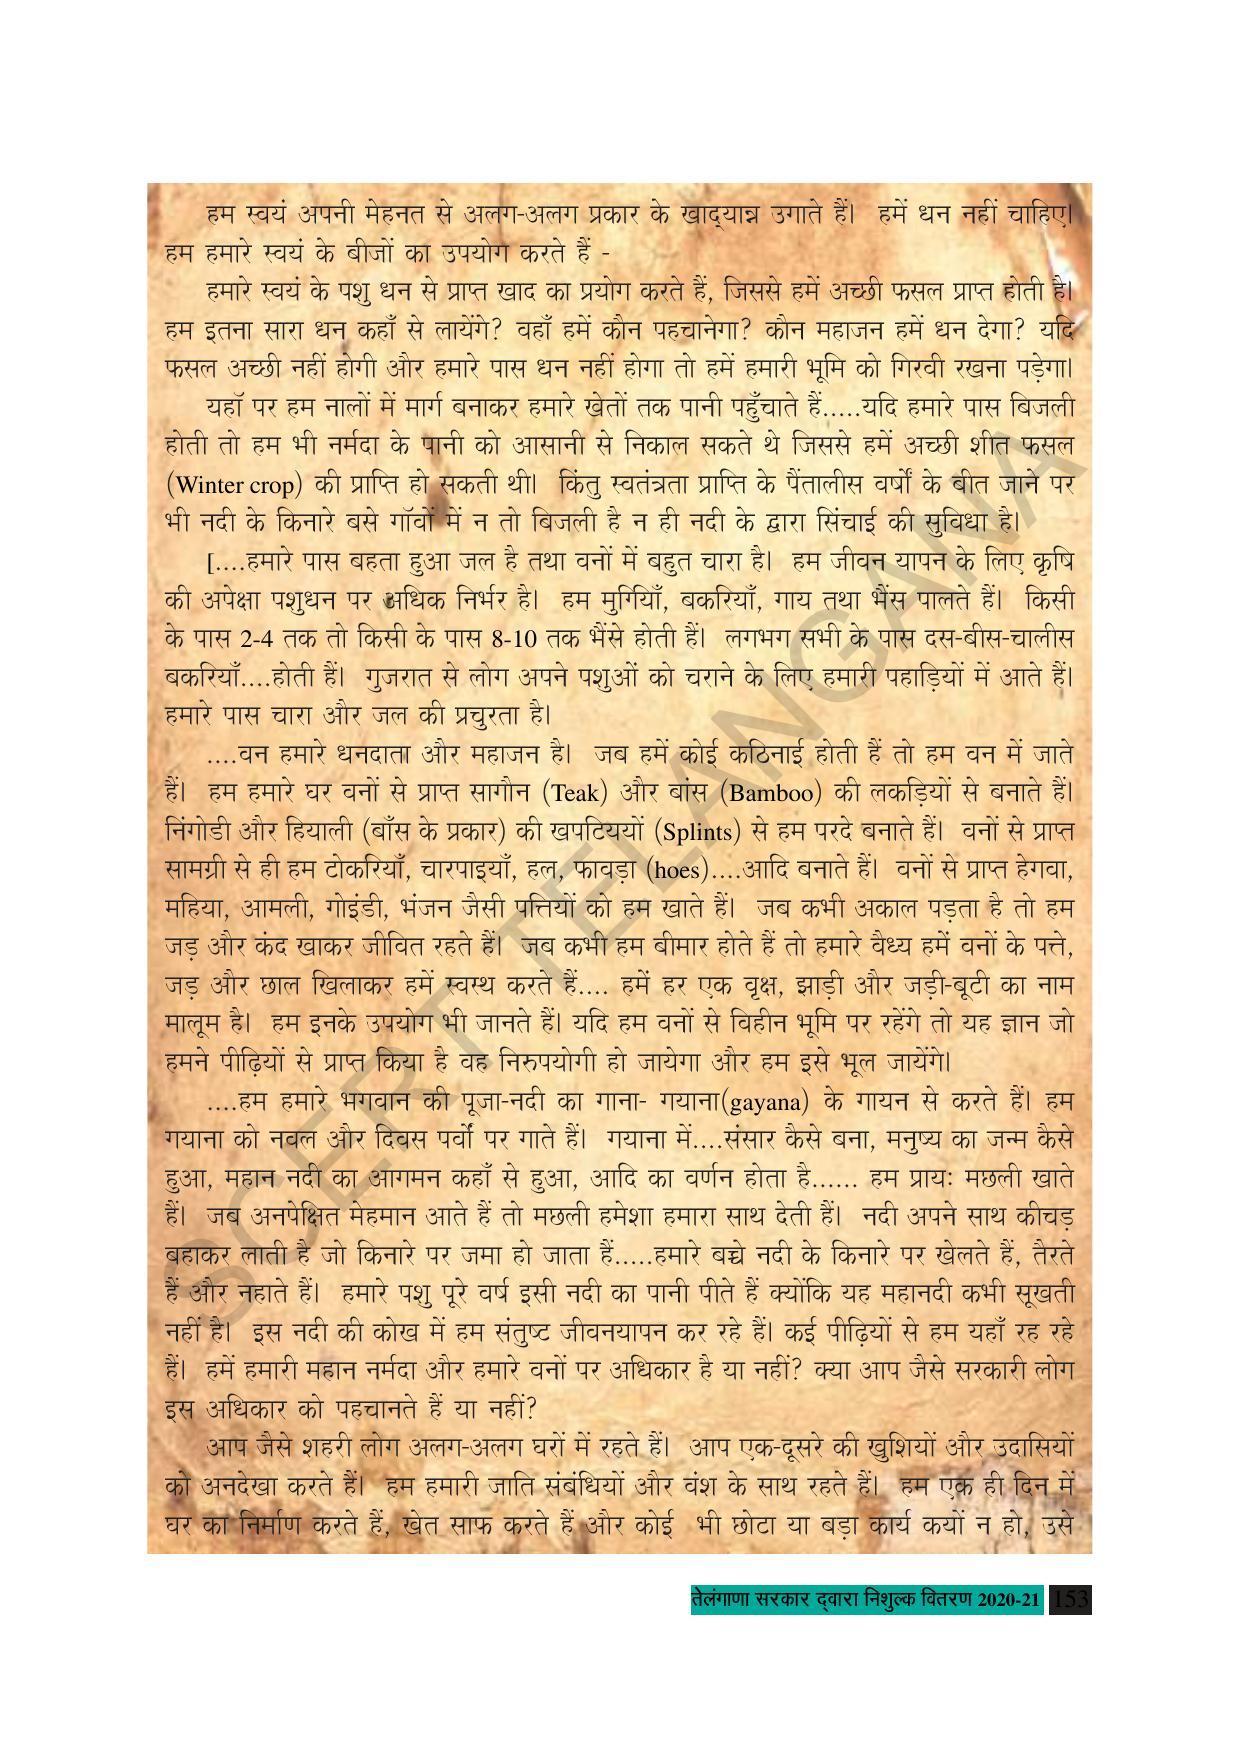 हम स्वयं अपनी मेहनत से अलग-अलग प्रकार के खाद्यान्न उगाते हैं। हमें धन नहीं चाहिए।
हम हमारे स्वयं के बीजों का उपयोग करते हैं -
हमारे स्वयं के पशु धन से प्राप्त खाद का प्रयोग करते हैं, जिससे हमें अच्छी फसल प्राप्त होती है।
हम इतना सारा धन कहाँ से लायेंगे? वहाँ हमें कौन पहचानेगा? कौन महाजन हमें धन देगा? यदि
फसल अच्छी नहीं होगी और हमारे पास धन नहीं होगा तो हमें हमारी भूमि को गिरवी रखना पड़ेगा।
यहॉ पर हम नालों में मार्ग बनाकर हमारे खेतों तक पानी पहुँचाते हैं.....यदि हमारे पास बिजली
होती तो हम भी नर्मदा के पानी को आसानी से निकाल सकते थे जिससे हमें अच्छी शीत फसल
(Winter crop) की प्राप्ति हो सकती थी। किंतु स्वतंत्रता प्राप्ति के पैंतालीस वर्षों के बीत जाने पर
भी नदी के किनारे बसे गॉवों में न तो बिजली है न ही नदी के द्वारा सिंचाई की सुविधा है।
[....हमारे पास बहता हुआ जल है तथा वनों में बहुत चारा है। हम जीवन यापन के लिए कृषि
की अपेक्षा पशुधन पर अधिक निर्भर है। हम मुर्गियाँ, बकरियाँ, गाय तथा भैंस पालते हैं। किसी
के पास 2-4 तक तो किसी के पास 8-10 तक भैंसे होती हैं। लगभग सभी के पास दस-बीस-चालीस
बकरियाँ....होती हैं। गुजरात से लोग अपने पशुओं को चराने के लिए हमारी पहाड़ियों में आते हैं।
हमारे पास चारा और जल की प्रचुरता है।
....वन हमारे धनदाता और महाजन है। जब हमें कोई कठिनाई होती हैं तो हम वन में जाते
हैं। हम हमारे घर वनों से प्राप्त सागौन (Teak) और बांस (Bamboo) की लकड़ियों से बनाते हैं।
निंगोडी और हियाली (बाँस के प्रकार) की खपटिययों (Splints) से हम परदे बनाते हैं। वनों से प्राप्त
सामग्री से ही हम टोकरियाँ, चारपाइयाँ, हल, फावड़ा (hoes)....आदि बनाते हैं। वनों से प्राप्त हेगवा,
महिया, आमली, गोइंडी, भंजन जैसी पत्तियों को हम खाते हैं। जब कभी अकाल पड़ता है तो हम
जड़ और कंद खाकर जीवित रहते हैं। जब कभी हम बीमार होते हैं तो हमारे वैध्य हमें वनों के पत्ते,
जड़ और छाल खिलाकर हमें स्वस्थ करते हैं.... हमें हर एक वृक्ष, झाड़ी और जड़ी-बूटी का नाम
मालूम है। हम इनके उपयोग भी जानते हैं। यदि हम वनों से विहीन भूमि पर रहेंगे तो यह ज्ञान जो
हमने पीढ़ियों से प्राप्त किया है वह निरुपयोगी हो जायेगा और हम इसे भूल जायेंगे।
....हम हमारे भगवान की पूजा-नदी का गाना- गयाना(gayana) के गायन से करते हैं। हम
गयाना को नवल और दिवस पर्वों पर गाते हैं। गयाना में....संसार कैसे बना, मनुष्य का जन्म कैसे
हुआ, महान नदी का आगमन कहाँ से हुआ, आदि का वर्णन होता है...... हम प्रायः मछली खाते
हैं। जब अनपेक्षित मेहमान आते हैं तो मछली हमेशा हमारा साथ देती हैं। नदी अपने साथ कीचड़
बहाकर लाती है जो किनारे पर जमा हो जाता हैं.....हमारे बच्चे नदी के किनारे पर खेलते हैं, तैरते
हैं और नहाते हैं। हमारे पशु पूरे वर्ष इसी नदी का पानी पीते हैं क्योंकि यह महानदी कभी सूखती
नहीं है। इस नदी की कोख में हम संतुष्ट जीवनयापन कर रहे हैं। कई पीढ़ियों से हम यहाँ रह रहे
हैं। हमें हमारी महान नर्मदा और हमारे वनों पर अधिकार है या नहीं? क्या आप जैसे सरकारी लोग
इस अधिकार को पहचानते हैं या नहीं?
आप जैसे शहरी लोग अलग-अलग घरों में रहते हैं। आप एक-दूसरे की खुशियों और उदासियों
को अनदेखा करते हैं। हम हमारी जाति संबंधियों और वंश के साथ रहते हैं। हम एक ही दिन में
घर का निर्माण करते हैं, खेत साफ करते हैं और कोई भी छोटा या बड़ा कार्य कयों न हो, उसे
SCERT TELANGANA
तेलंगाणा सरकार द्वारा निशुल्क वितरण 2020-21 153